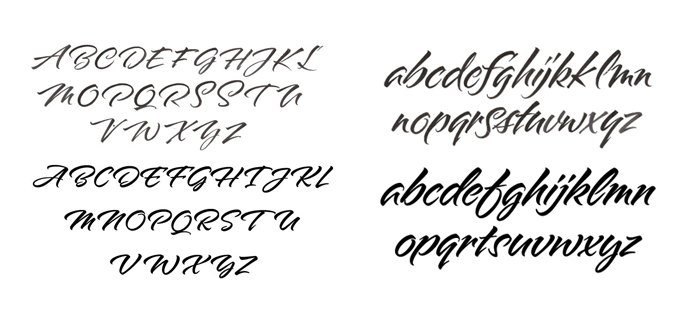 ABCDEFGHJKL
MOPQRSSTU
VWXYZ
ABCDEFGHIJKL
MNOPQRSTU
VWXYZ
abcdefghijkklmn
nopqrsstuvwxyz
abcdefghijklmn
opqrtsuvwxyz